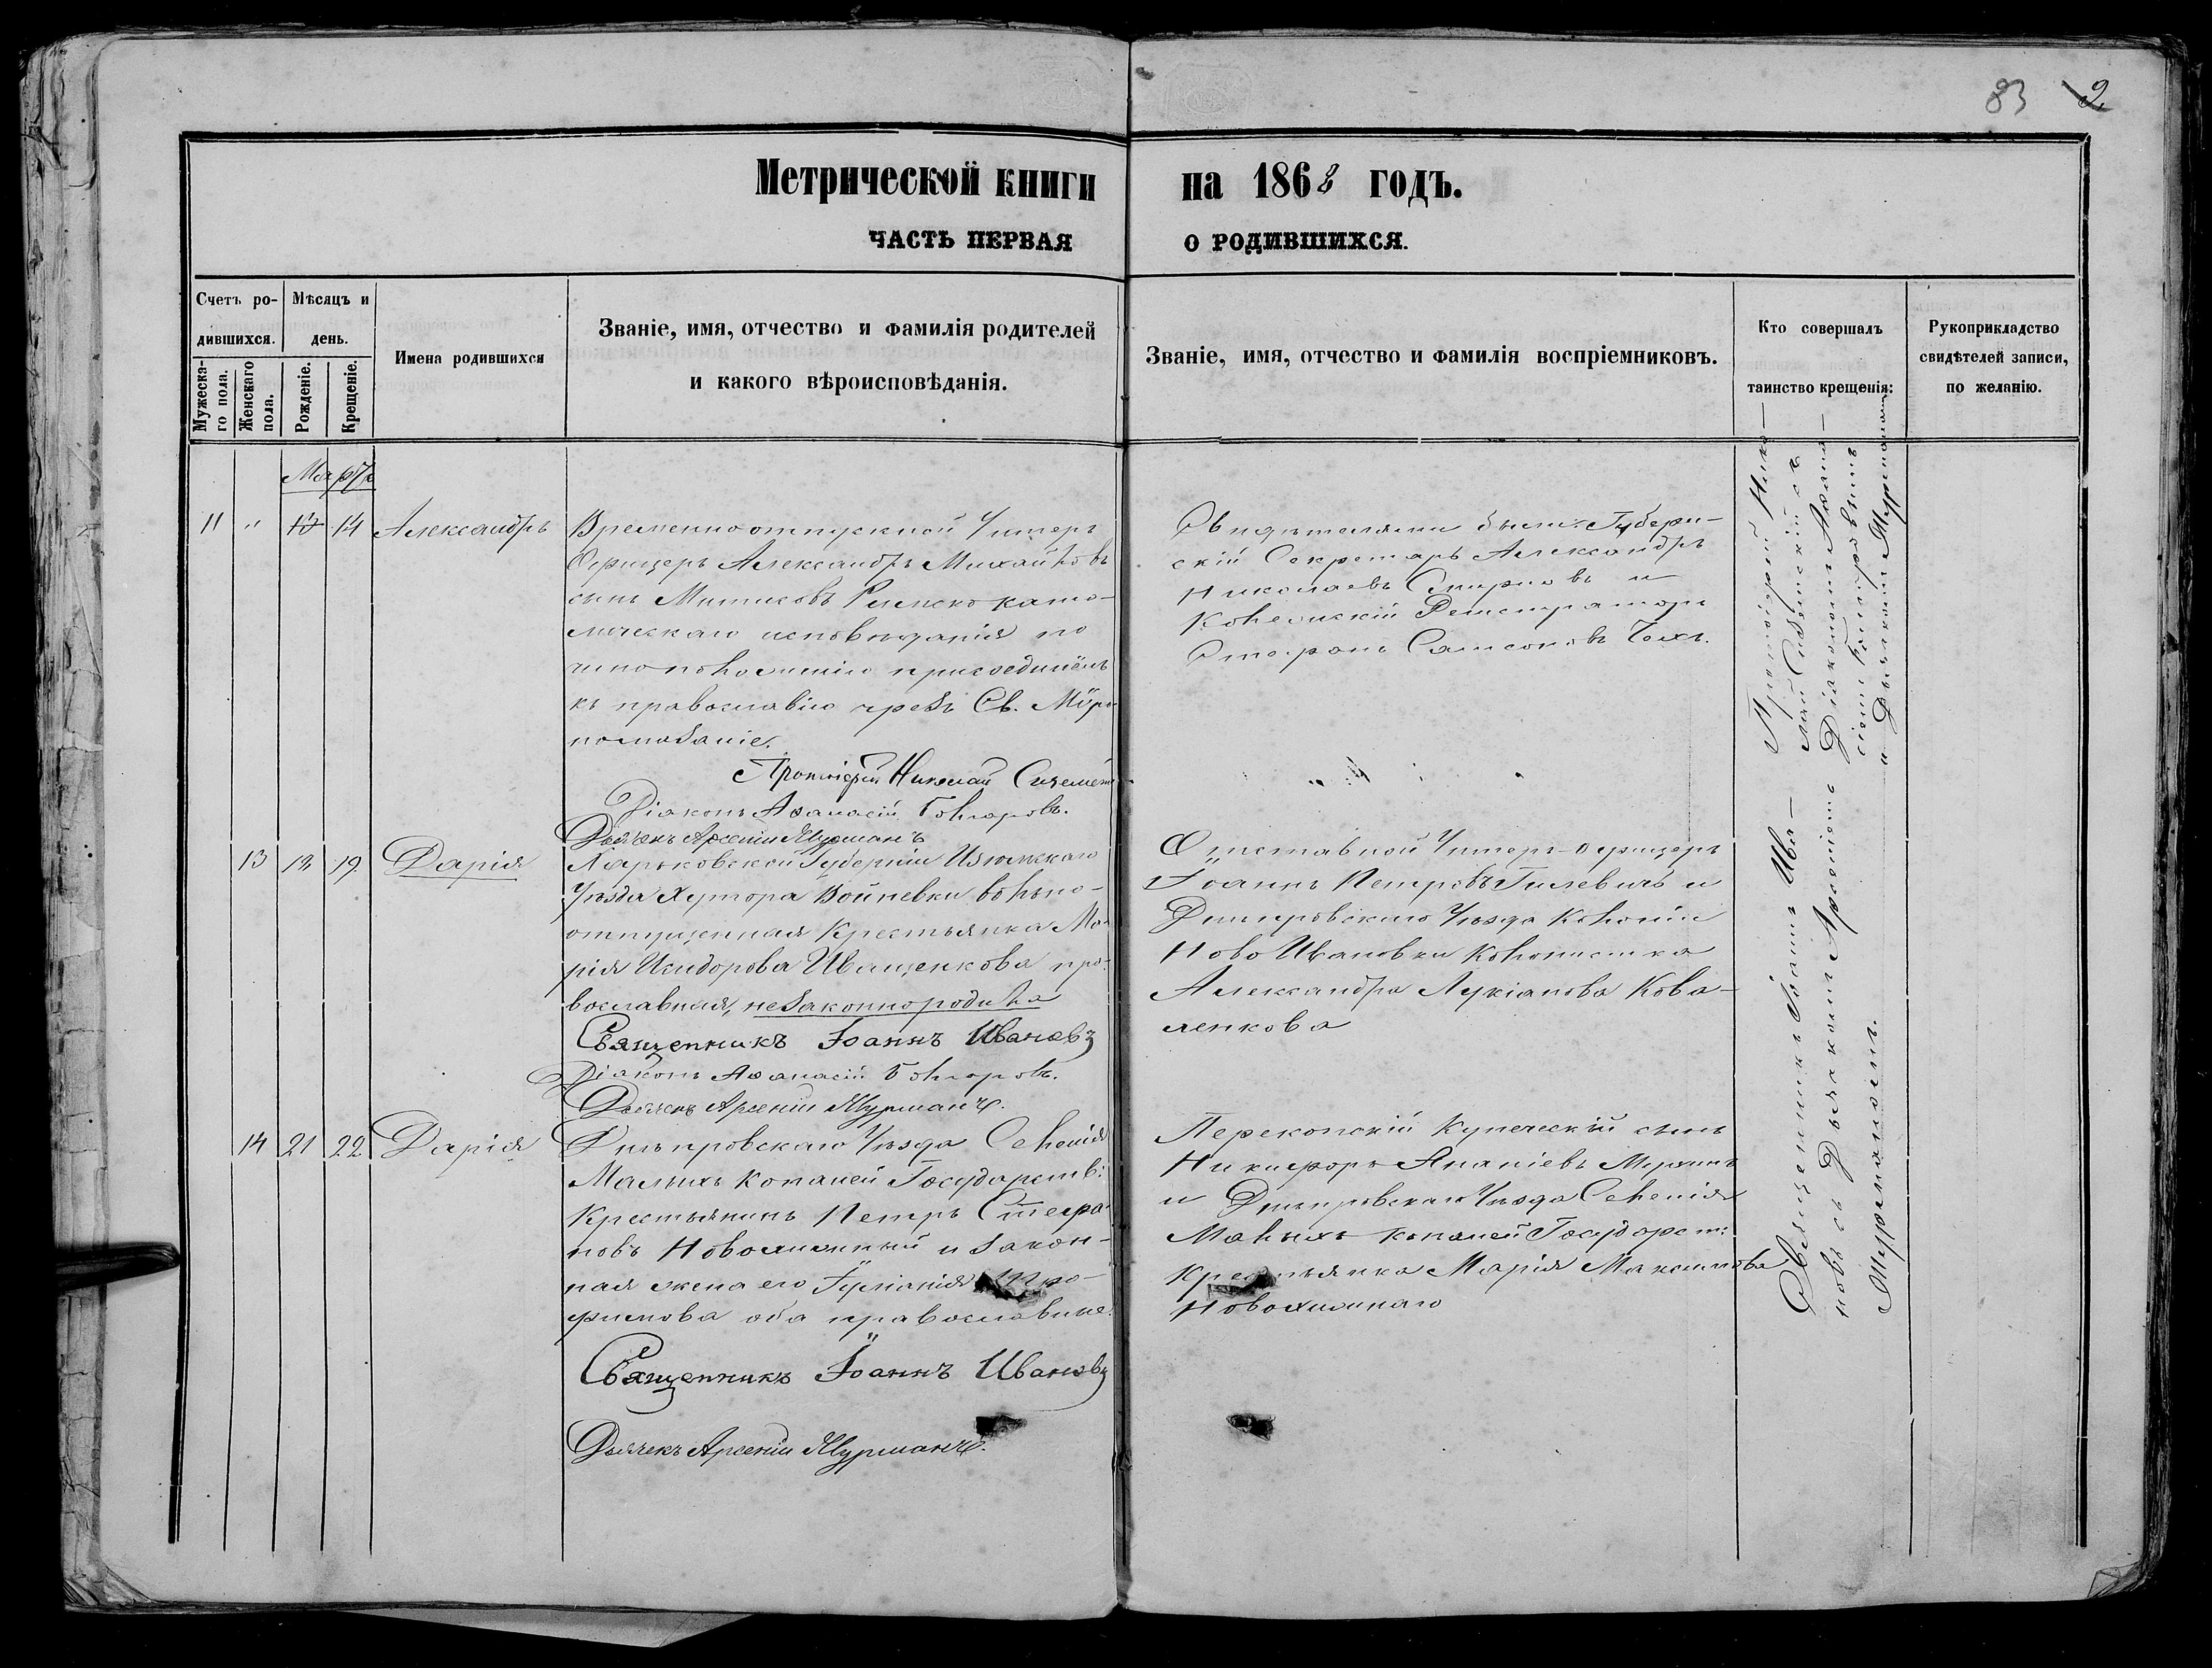 83 2
Метрической книги на 1862 годъ.
ЧАСТЬ ПЕРВАЯ О РОДИВШИХСЯ.
Счетъ ро-
дившихся.
Мужеска-
го пола.
Женскаго
пола.
Мѣсяцъ и
день.
Рожденіе.
Крещеніе.
Имена родившихся
Званіе, имя, отчество и фамилія родителей
и какого вѣроисповѣданія.
Званіе, имя, отчество и фамилія воспріемниковъ.
Кто совершалъ
таинство крещенія:
Рукоприкладство
свидѣтелей записи,
по желанію.
Мартъ
11 " 14 Александръ
Временно отпускной Унтеръ
Офицеръ Александръ Михайловъ
сынъ Римско като-
лическаго исповѣданія по
чиноположенію присоединёнъ
къ православію чрезъ Св. Мѵро
помазаніе.
Протоіерей Николай
Діаконъ Аѳанасій Гончаровъ.
Дьячекъ Арсеній Мурманъ
Свидѣтелями были: Губерн-
скій Секретарь Александръ
Николаевъ Смирновъ и
Колежскій Регистраторъ
Самсоновъ
Протоіерей Нико-
лай съ
Діакономъ Аѳана-
сіемъ Гончаровымъ
и Дьячкомъ Мурманомъ
13 13 19. Дарія
Харьковской Губерніи Изюмскаго
Уѣзда Хутора Войневки вольно-
отпущенная Крестьянка Ма-
рія Исидорова Иващенкова пра-
вославная, незаконнородила
Священникъ Іоаннъ Ивановъ
Діаконъ Аѳанасій Гончаровъ.
Дьячекъ Арсеній Мурманъ.
Отставной Унтеръ-офицеръ
Іоаннъ Петровъ Гилевичъ и
Днепровскаго Уѣзда Колоніи
Ново Ивановки Колонистка
Александра Лукіанова Кова-
ленкова
Священникъ Іоаннъ Ива-
новъ съ Дьячкомъ Арсеніемъ
Мурманомъ.
14 21 22 Дарія
Днѣпровскаго Уѣзда Селенія
Малыхъ Копаней Государств:
Крестьянинъ Петръ Стефа-
новъ Новохижный и закон-
ная жена его Іуліанія Тро-
фимова оба православные.
Священникъ Іоаннъ Ивановъ
Дьячекъ Арсеній Мурманъ.
Перекопскій Купеческій сынъ
Никифоръ Ананіевъ
и Днѣпровскаго Уѣзда Селенія
Малыхъ Копаней Государст:
Крестьянка Марія Максимова
Новохижнаго